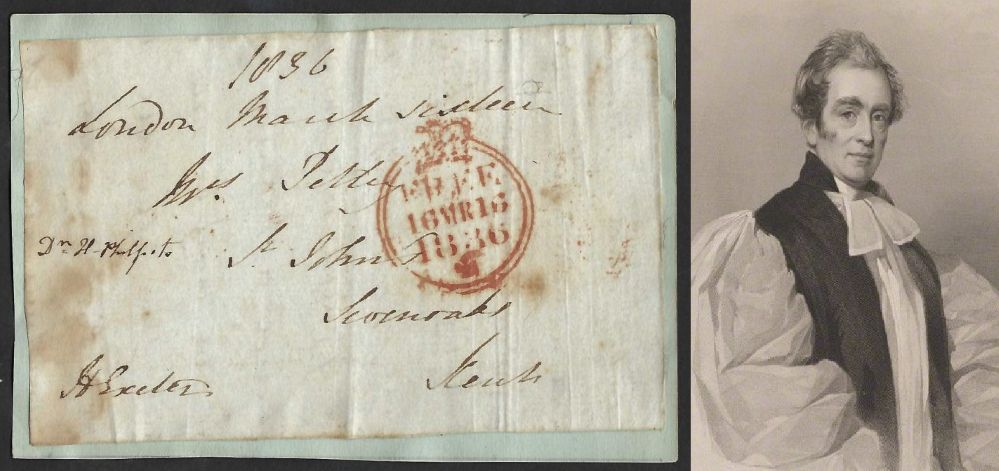 1836
London March sixteen
Mrs. Petley
FREE
16 MR 16
1836
Dr H. Philpots
St Johns
Sevenoaks
H Exeter
Kent